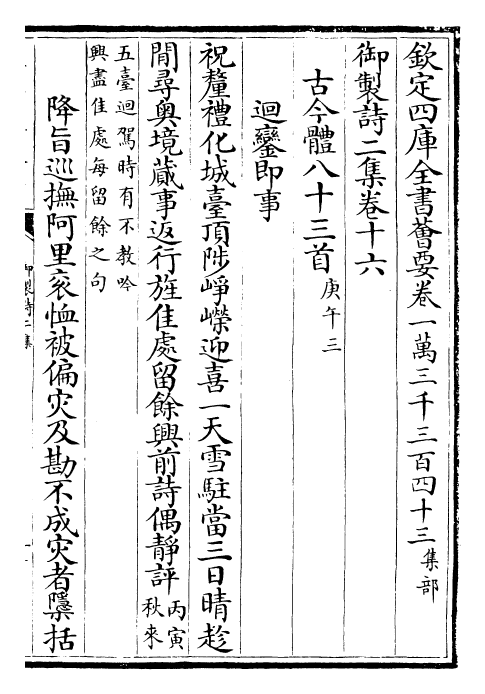 欽定四庫全書薈要卷一萬三千三百四十三 集部
御製詩二集卷十六
古今體八十三首 庚午三
迴鑾即事
祝釐禮化城臺頂陟崢嶸迎喜一天雪駐當三日晴趁
閒尋奧境蕆事返行旌佳處留餘興前詩偶靜評 丙寅秋來
五臺迴駕時有不教吟
興盡佳處每留餘之句
降旨巡撫阿里衮恤被偏灾及勘不成灾者檃括